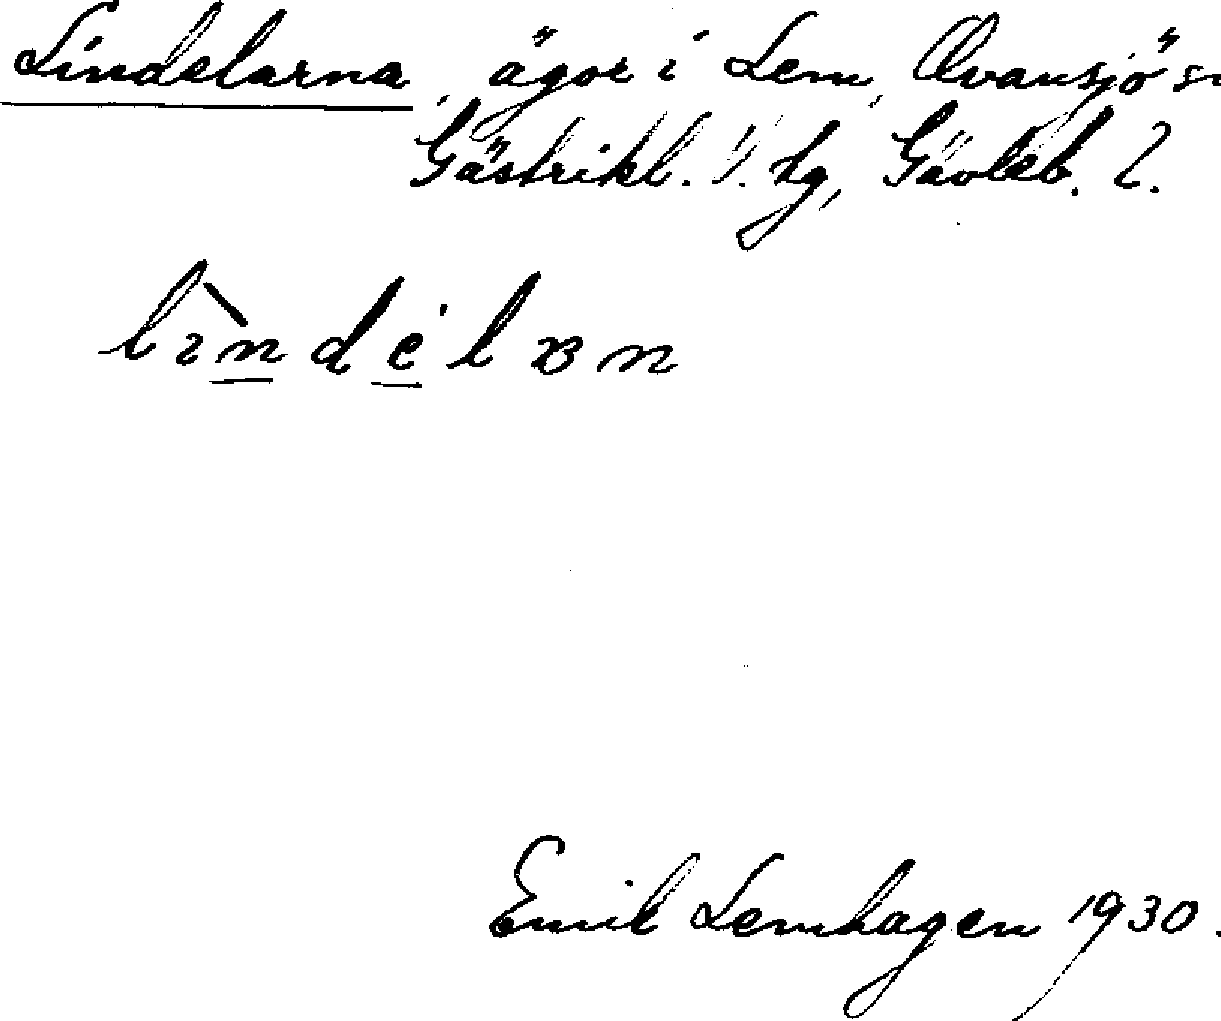 Lindelarna, ägor i Lem, Ovansjö sn
Gästrikl. V. tg, Gävleb. l.
lìndélɐn
Emil Lemhagen 1930.